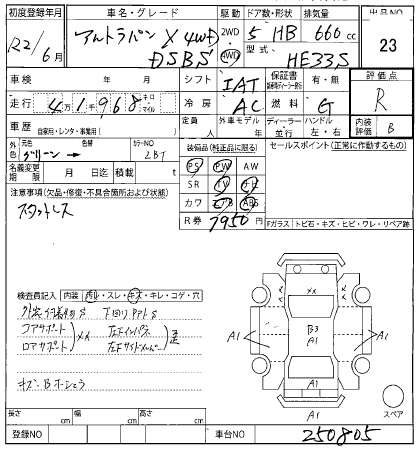 初度登録年月 車名・グレード 駆動 ドア数・形状 排気量 出品NO
R2/6月 アルトラパン X 4WD DSBS 2WD 4WD 5 HB 660cc 23
型式 HE33S
車検 年 月 シフト IAT 保証書 有・無 評価点
走行 4万1千968 キロ マイル 冷房 AC 燃料 G R
車歴 自家用・レンタ・事業用( ) 定員 人 外車モデル 年 ディーラー・並行 ハンドル 左・右 内装評価 B
外色 元色 グリーン → 色替 カラーNO ZBT 装備品(純正品に限る) セールスポイント(正常に動作するもの)
名義変更期限 月 日迄 積載 t PS PW AW
注意事項(欠品・修復・不具合箇所および状態) SR TV ナビ
スタットレス カワ エアB ABS
R券 7950円 Fガラス トビ石・キズ・ヒビ・ワレ・リペア跡
検査員記入 内装 汚れ・スレ・キズ・キレ・コゲ・穴
下回りアトS
コアサポート
ロアサポート XX 左Fインパネ
左Fサイドメンバー
キズ・Bホショウ
XX
B3
A1
A1
A1
A1
A1
スペア
長さ cm 幅 cm 高さ cm
登録NO 車台NO 250805